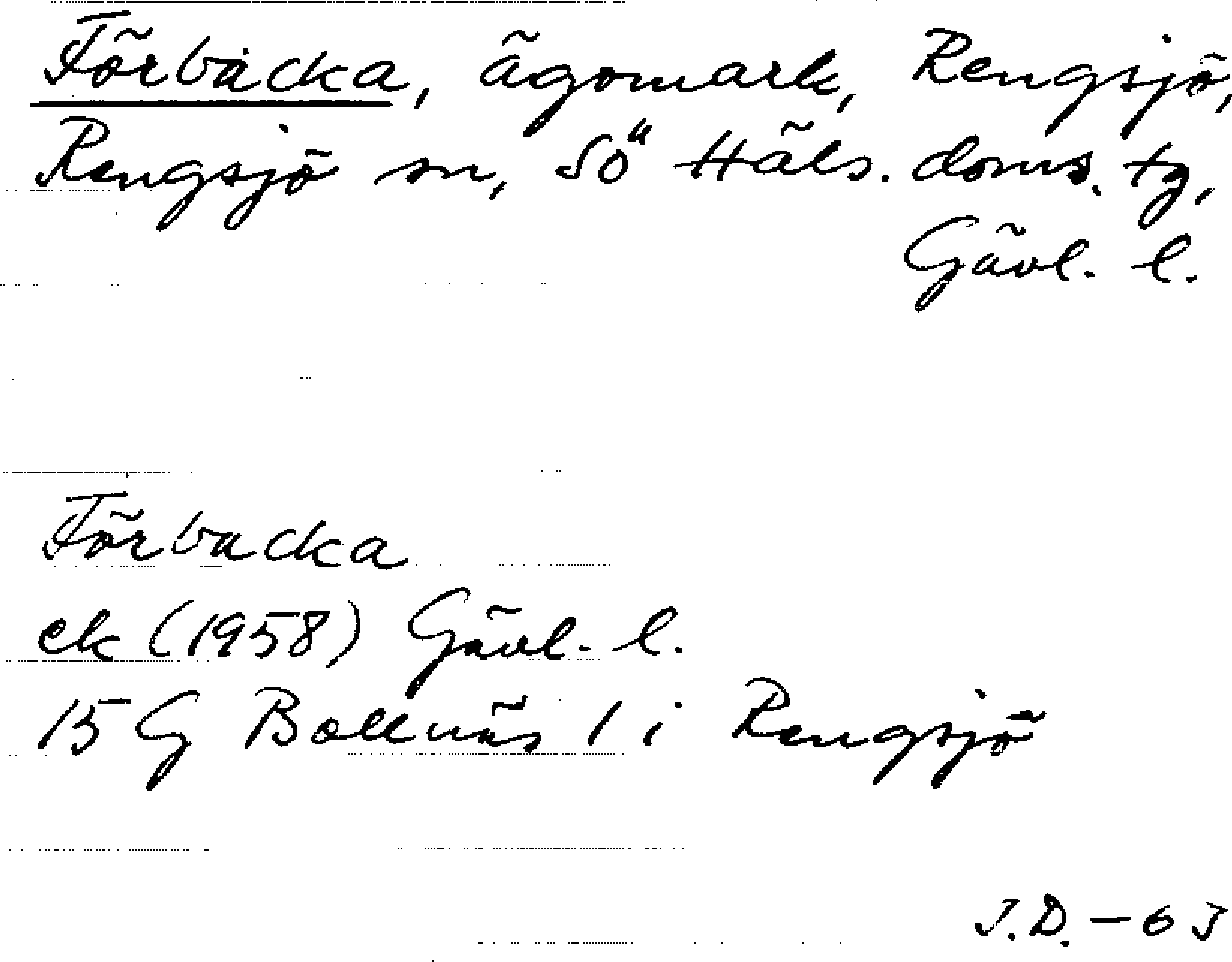 Förbacka, ägomark, Rengsjö,
Rengsjö sn, Sö Häls. doms. tg,
Gävl. l.
Förbacka
ek (1958) Gävl. l.
15 G Bollnäs 1 i Rengsjö
J.D. - 63